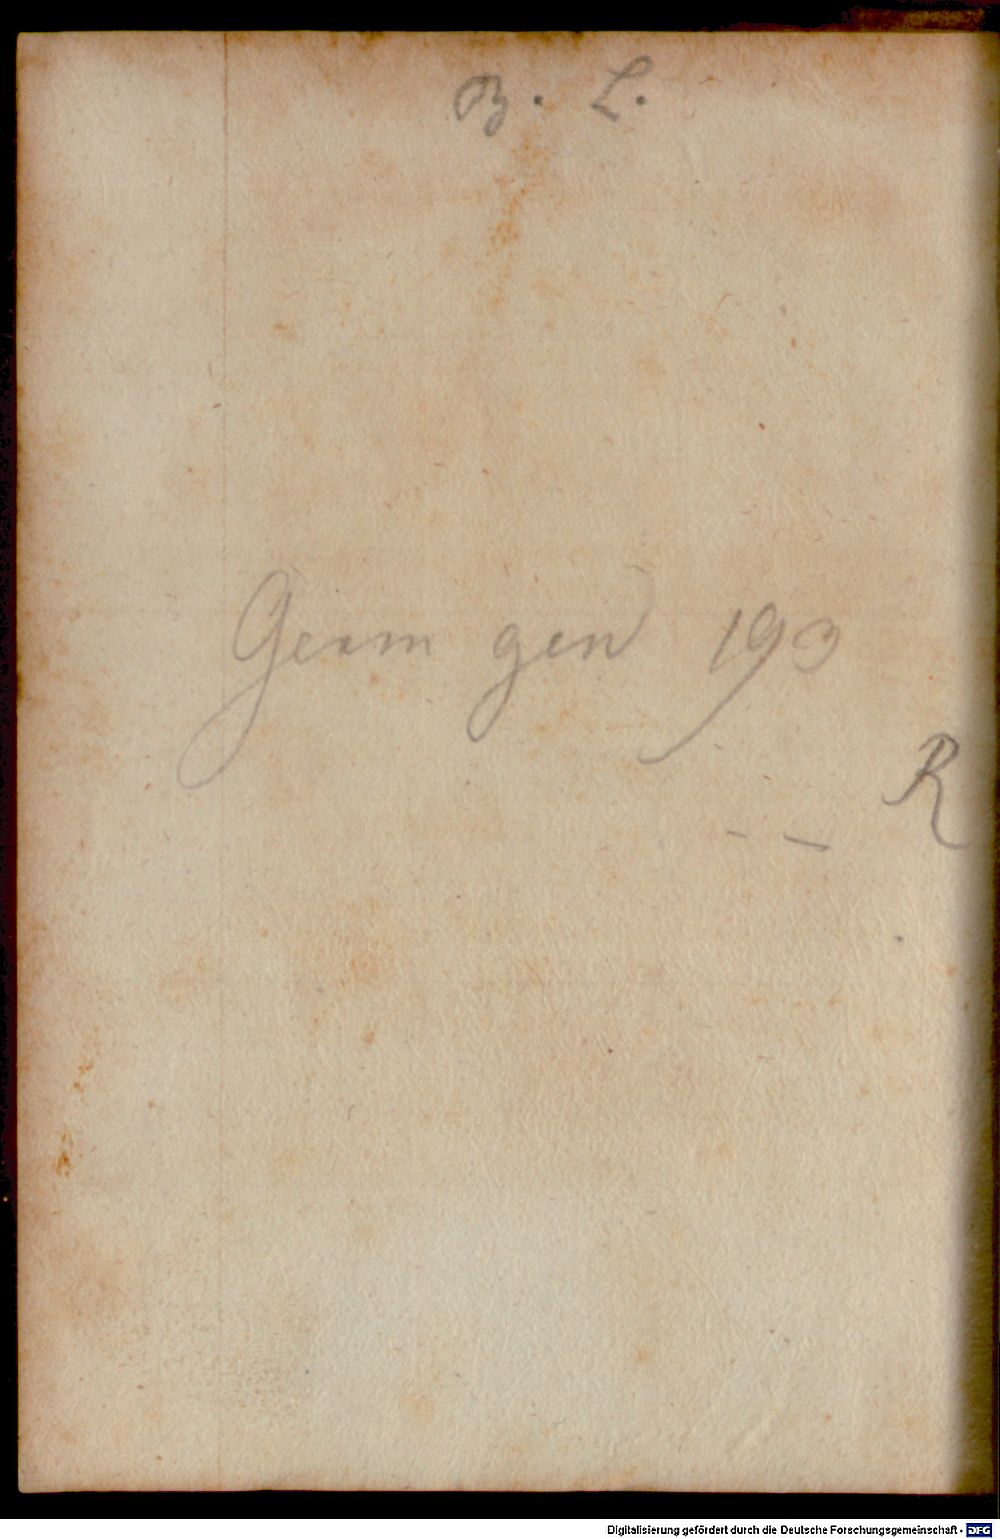 B. L.
Germ gen 193
R
Digitalisierung gefördert durch die Deutsche Forschungsgemeinschaft - DFG